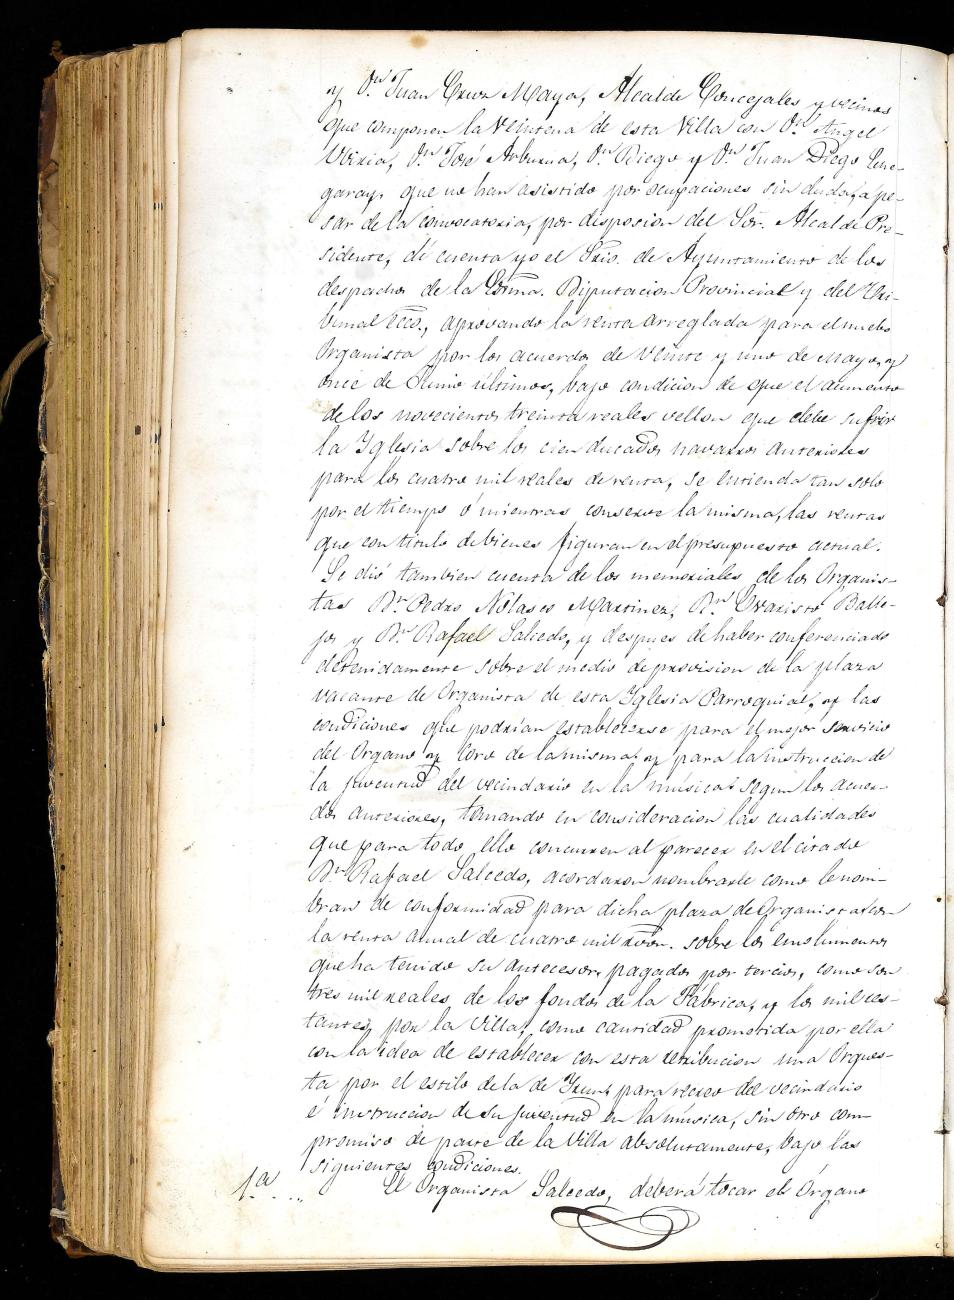 y Dn. Juan Cruz Mayo, Alcalde Concejales y vecinos
que componen la Veintena de esta Villa con Dn. Angel
Dn. José Dn. Diego y Dn. Juan Diego Eche-
garay, que no han asistido por ocupaciones sin duda, ape-
sar de la convocatoria, por disposion del Sor. Alcalde Pre-
sidente, dí cuenta yo el Srio. de Ayuntamiento de los
despachos de la Exma. Diputacion Provincial y del Tri-
bunal Ecco., aprovando la renta arreglada para el nuebo
Organista por los acuerdos de Veinte y uno de Mayo, y
once de Junio últimos, bajo condicion de que el aumento
de los novecientos treinta reales vellon que debe sufrir
la Yglesia sobre los cien ducados navarros anteriores
para los cuatro mil reales de renta, se entienda tan solo
por el tiempo ó mientras conserve la misma, las rentas
que con título de vienes figuran en el presupuesto actual.
Se dió tambien cuenta de los memoriales de los Organis-
tas Dn. Pedro Nolasco Martinez, Dn. Evaristo Balle-
jo y Dn. Rafael Salcedo, y despues de haber conferenciado
detenidamente sobre el medio de provision de la plaza
vacante de Organista de esta Yglesia Parroquial, y las
condiciones que podrían establecerse para el mejor servicio
del Organo y Coro de la misma, y para la instruccion de
la juventud del vecindario en la música segun los acuer-
dos anteriores, tomando en consideracion las cualidades
que para todo ello concurren al parecer en el citado
Dn. Rafael Salcedo, acordaron nombrarle como le nom-
bran de conformidad para dicha plaza de Organista con
la renta anual de cuatro mil rvon. sobre los emolumentos
que ha tenido su antecesor, pagados por tercios, como son
tres mil reales, de los fondos de la Fábrica, y los mil res-
tantes, por la Villa, como cantidad prometida por ella
con la idea de establecer con esta retribucion una Orques-
ta por el estilo de la de Yrun, para recreo del vecindario
é instruccion de su juventud en la música, sin otro com-
promiso de parte de la Villa absolutamente, bajo las
siguientes condiciones.
1.a ... El Organista Salcedo, deberá tocar el Órgano